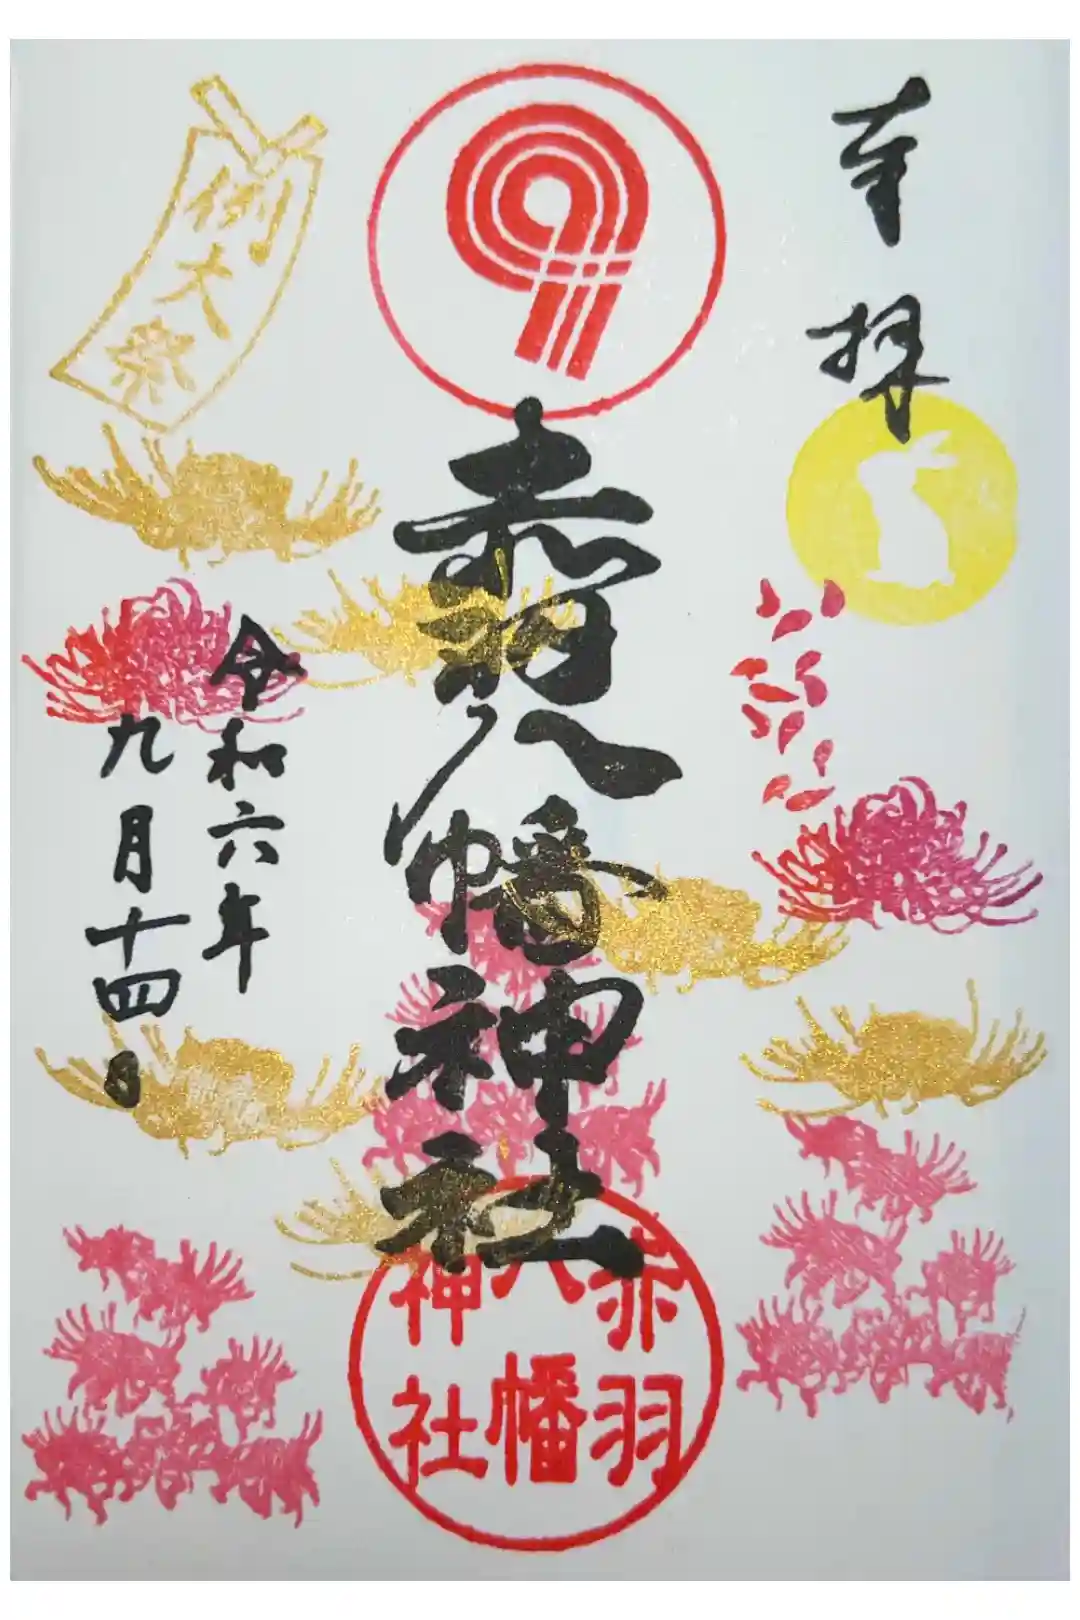 奉拝
赤羽八幡神社
赤羽
八幡
神社
令和六年
九月十四日
例大祭